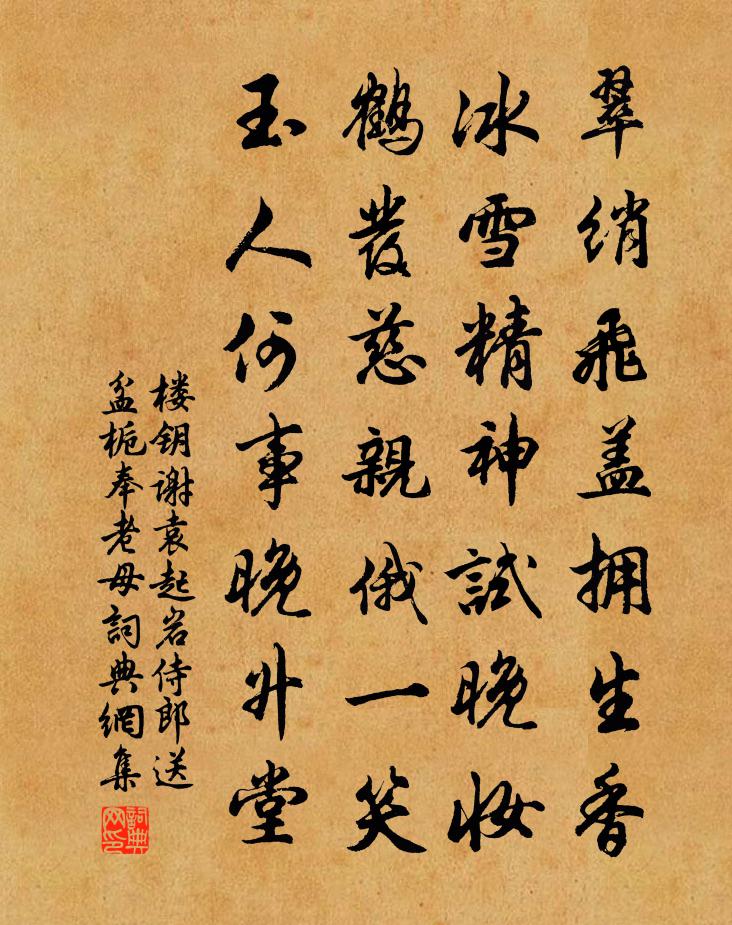 翠绡飛盖拥生香
冰雪精神試晚妆
鶴发慈親俄一笑
玉人何事晚升堂
楼钥谢袁起岩侍郎送
盆栀奉老母詞典網集
詞典
网印